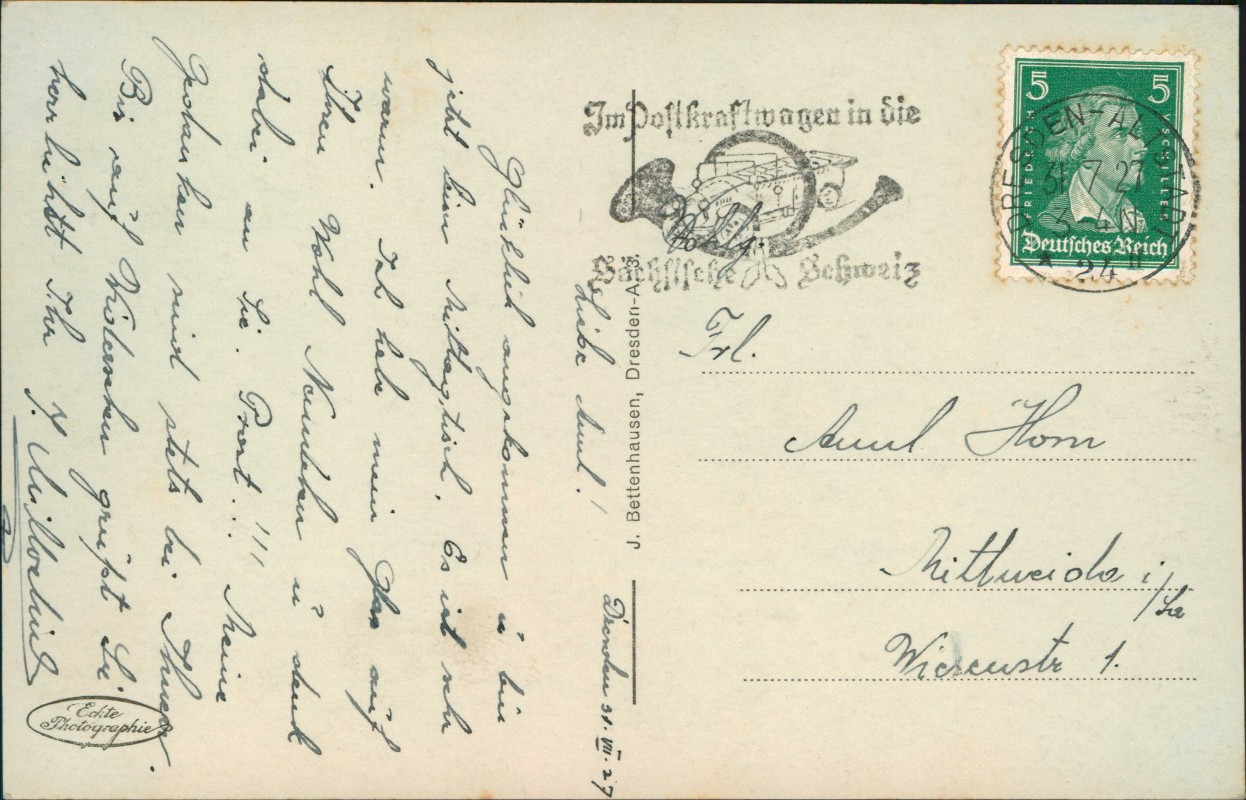 Dresden 31. VII. 27
Liebe Anni!
Glücklich angekommen u bin
jetzt beim Mittagstisch. Es ist sehr
warm. Ich hebe mein Glas auf
Ihren Wohl Nunchen u denk
dabei an Sie. Prost..!!! Meine
Gedanken sind stets bei Ihnen.
Bis auf Wiedersehen grüsst Sie
herzlichst Ihr
Echte
Photographie
J. Bettenhausen, Dresden-A. 3.
Im Postkraftwagen in die
Sächsische Schweiz
5 5
FRIEDRICH V. SCHILLER
Deutsches Reich
DRESDEN-ALTSTADT
31.7.27
3-4 N
★ 24 ll
Wohlg.
Frl.
Anni Horn
Mittweida i/Sa
Wiesenstr 1.